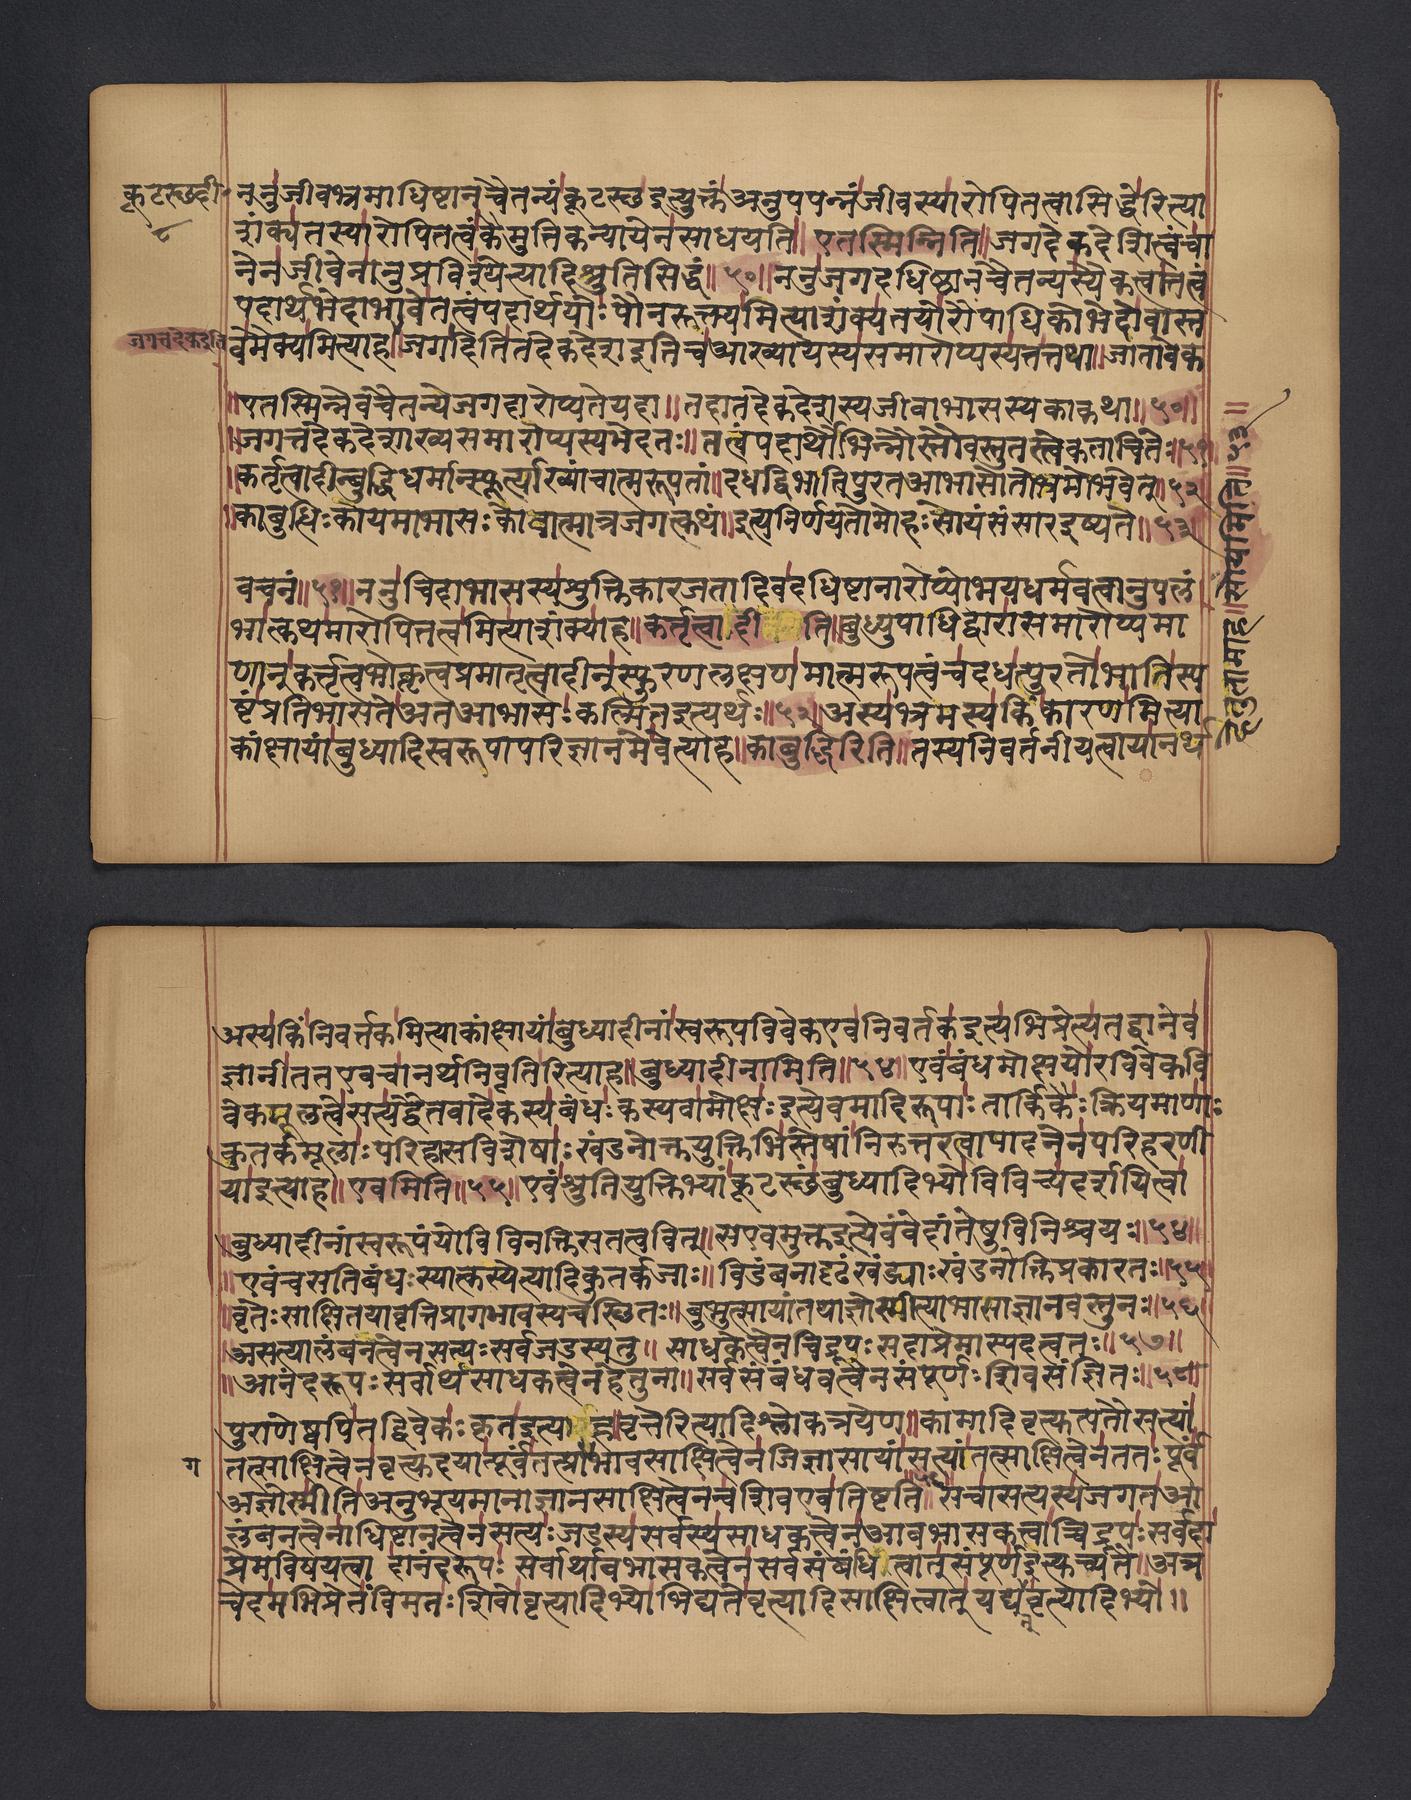 कूटस्छदी
८
ननुजीवभ्रमाधिष्टानंचैतन्यंकूटस्छइत्युक्तंअनुपपन्नंजीवस्यारोपितत्वासिद्धेरित्या
शंक्यतस्यारोपितत्वंकैमुत्तिकन्यायेनसाधयति॥एतस्मिन्नितिति॥जगदेकदेशित्वंचा
नेनजीवेनानुप्रविश्येत्यादिश्रुतिसिद्धं॥५०॥ननुजगदधिष्ठानंचैतन्यस्यैकत्वात्तत्वं
पदार्थभेदाभावेतत्वंपदार्थयोः पौनरुक्त्यमित्याशंक्यतयोरौपाधिकोभेदोवास्त
जगत्तदेकदेइति
वमैक्यमित्याह॥जगदितितदेकदेशइतिचआख्यायस्यसमारोप्यस्यतत्तथा॥जातावेक
॥एतस्मिन्नेवचैतन्येजगदारोप्यतेयदा॥तदातदेकदेशस्यजीवाभासस्यकाकथा॥५०॥
॥जगत्तदेकदेशाख्यसमारोप्यस्यभेदतः॥तत्वंपदार्थौभिन्नौस्तोवस्तुतस्त्वेकताचितेः॥५१॥
।कर्तृत्वादीन्बुद्धिधर्मान्स्फूर्त्याख्यांचात्मरूपतां॥दधद्विभातिपुरतआभासोतोभ्रमोभवेत्॥५२॥
।काबुधिःकोयमाभासःकोवात्मात्रजगत्कथं॥इत्यनिर्णयतोमोहःसोयंसंसारइष्यते॥५३॥
वचनं॥५१॥ननुचिदाभासस्यशुक्तिकारजतादिवदधिष्टानारोप्योभयधर्मवत्वानुपलं
भात्कथमारोपितत्वमित्याशंक्याह॥कर्तृत्वादीति॥बुध्युपाधिद्वारासमारोप्यमा
णान्कर्त्तृत्वभोक्तृत्वप्रमातृत्वादीन्स्फुरणलक्षणमात्मरूपत्वंचदधत्पुरतोभातिस्प
ष्टंप्रतिभासतेअतआभासःकल्पितइत्यर्थः॥५२॥अस्यभ्रमस्यकिंकारणमित्या
कांक्षायांबुध्यादिस्वरूपापरिज्ञानमेवेत्याह॥काबुद्धिरिति॥तस्यनिवर्तनीयत्वायानर्थ
हेतुतामाह॥सोयमिति॥५३॥
अस्यकिंनिवर्त्तकमित्याकांक्षायांबुध्यादीनांस्वरूपविवेकएवनिवर्तकइत्यभिप्रेत्यतद्वानेव
ज्ञानीततएवचानर्थनिवृत्तिरित्याह॥बुध्यादीनामिति॥५४॥एवंबंधमोक्षयोरविवेकवि
वेकमूलत्वेसत्यद्वैतवादेकस्यबंधःकस्यवामोक्षःइत्येवमादिरूपाःतार्किकैःक्रियमाणाः
कुतर्कमूलाःपरिहासविशेषाःखंडनोक्तयुक्तिभिस्तेषांनिरुत्तरत्वापादनेनपरिहरणी
याइत्याह॥एवमिति॥५५॥एवंश्रुतियुक्तिभ्यांकूटस्छंबुध्यादिभ्योविविच्यदर्शयित्वा
॥बुध्यादीनांस्वरूपंयोविविनक्तिसतत्ववित्॥सएवमुक्तइत्येवंवेदांतेषुविनिश्चयः॥५४॥
॥एवंचसतिबंधःस्यात्कस्येत्यादिकुतर्कजाः॥विडंबनादृढंखंड्याःखंडनोक्तिप्रकारतः॥५५॥
॥वृतेःसाक्षितयावृत्तिप्रागभावस्यचस्छितः॥बुभुत्सायांतथाज्ञोस्मीत्याभासाज्ञानवस्तुनः॥५६॥
॥असत्यालंबनत्वेनसत्यःसर्वजडस्यतु॥साधकत्वेनचिद्रूपःसदाप्रेमास्पदत्वतः॥५७॥
॥आनंदरूपःसर्वार्थसाधकत्वेनहेतुना॥सर्वसंबंधवत्वेनसंपूर्णःशिवसंज्ञितः॥५८॥
पुराणेष्वपितद्विवेकःकृतइत्याहवृत्तेरित्यादिश्लोकत्रयेण॥कामादिवृत्त्युत्पत्तौसत्यां
ग
तत्साक्षित्वेनवृत्त्युदयात्पूर्वंतत्प्राभावसाक्षित्वेनजिज्ञासायांसत्यांतत्साक्षित्वेनततःपूर्वं
अज्ञोस्मीतिअनुभूयमानाज्ञानसाक्षित्वेनचशिवएवतिष्टति॥५६॥सचासत्यस्यजगतआ
लंबनत्वेनाधिष्टानत्वेनसत्यःजडस्यसर्वस्यसाधकत्वेनअवभासकत्वाच्चिद्रूपःसर्वदा
प्रेमविषयत्वादानंदरूपः सर्वार्थावभासकत्वेनसर्वसंबंधित्वात्संपूर्णइत्युच्यते॥अत्र
चेदमभिप्रेतंविमतःशिवोवृत्यादिभ्योभिद्यतेवृत्यादिसाक्षित्वात्यद्यवृत्यादिभ्यो॥
न्